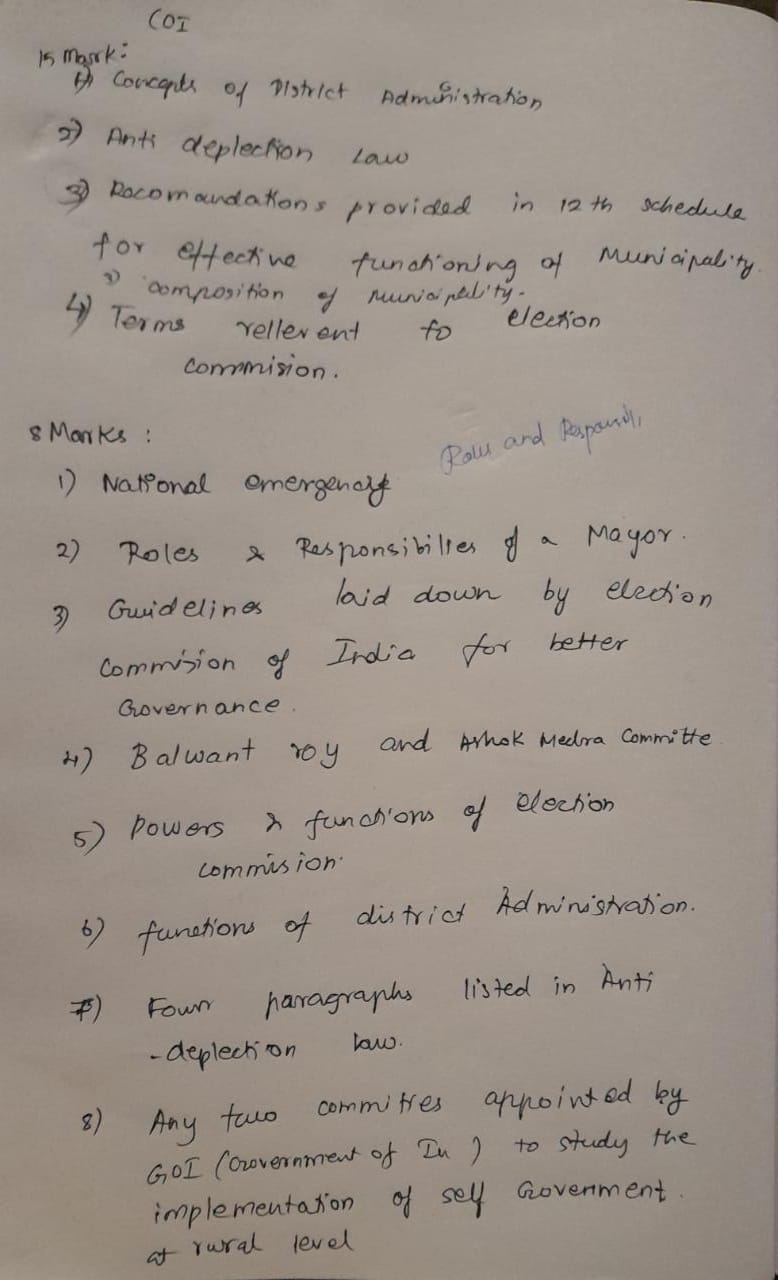 COI
15 Mark:
1) Concepts of District Administration
2) Anti deplection Law
3) Recomandations provided in 12th schedule
for effective functioning of Municipality.
3) composition of municipality.
4) Terms rellevent to election
commision.
8 Marks :
Roles and
1) National emergency
2) Roles & Responsibilies of a Mayor.
3) Guidelines laid down by election
Commision of India for better
Governance.
4) Balwant roy and Ashok Medra Committe
5) Powers & functions of election
commision.
6) functions of district Administration.
7) Four paragraphs listed in Anti
-deplection law.
8) Any two committes appointed by
GOI (Government of In ) to study the
implementation of self Goverment.
at rural level